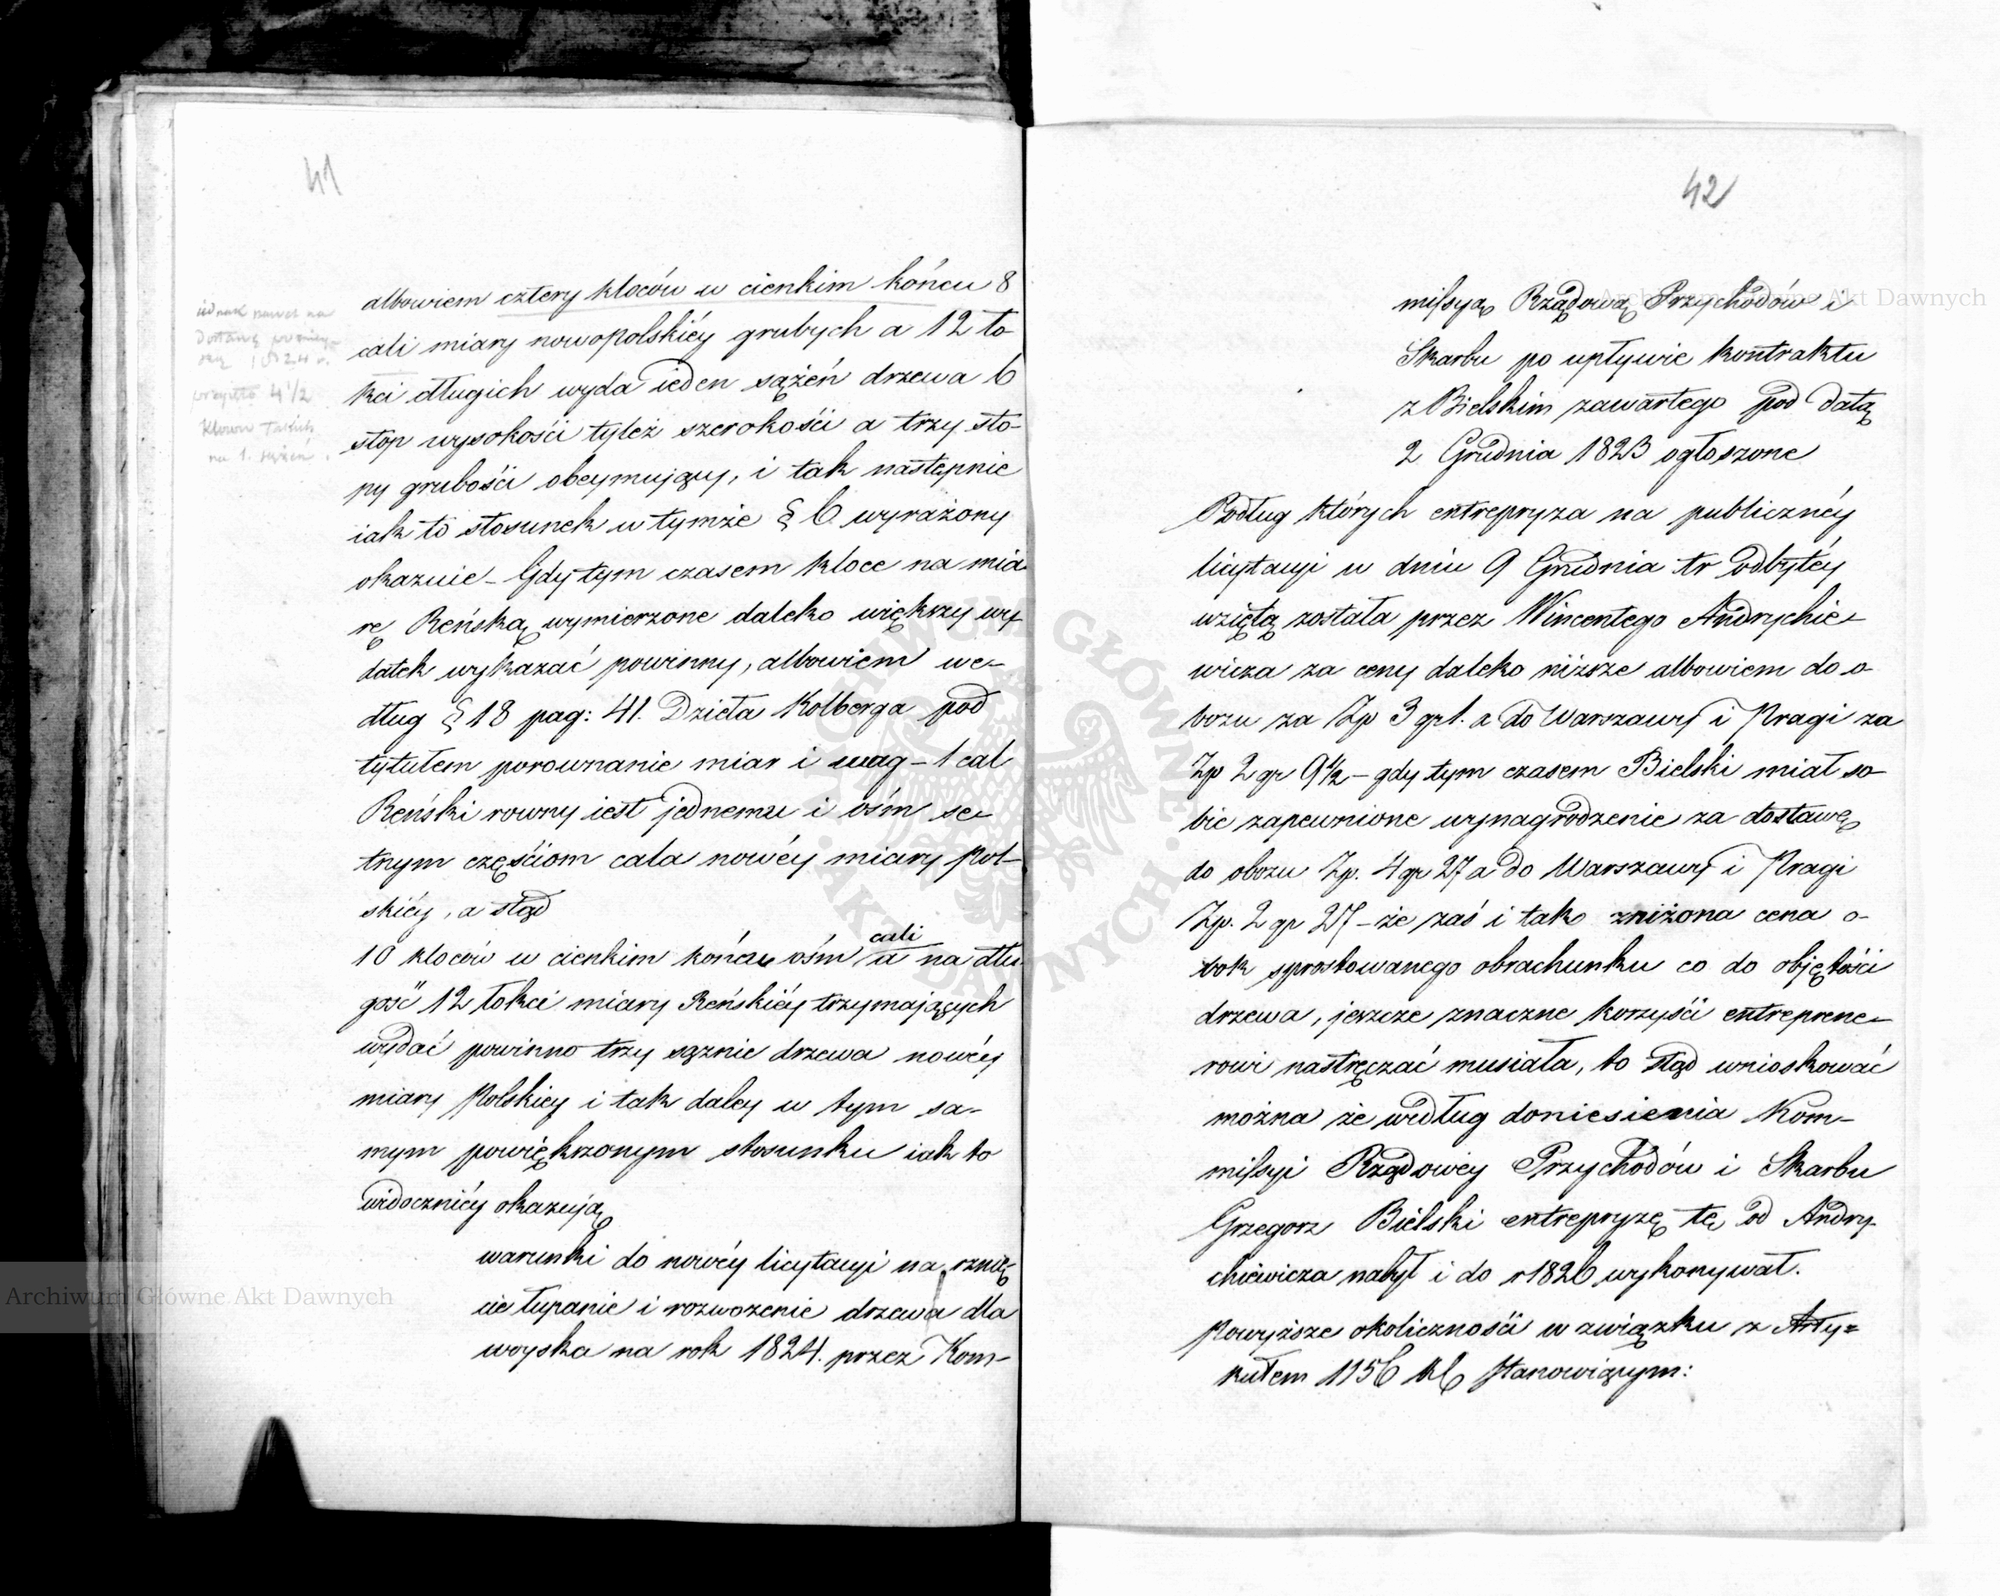 41
iednak nawet na
Dostawę
1824 r.
przyięto 4 1/2
klocow takich
na 1. sążeń.
albowiem cztery kloców w cienkim końcu 8
cali miary nowopolskiéy grubych a 12 ło
kci długich wyda ieden sążeń drzewa 6
stop wysokości tyleż szerokości a trzy sto-
py grubości obeymuiący, i tak następnie
iak to stosunek w tymże § 6 wyrażony
okazuie – Gdy tym czasem kloce na mia
rę Reńską wymierzone daleko większy wy
datek wykazać powinny, albowiem we-
dług § 18 pag: 41. Dzieła Kolberga pod
tytułem porownanie miar i wag – 1 cal
Reński rowny iest jednemu i ośm se-
tnym częściom cala nowéy miary Pol-
skiéy, a stąd
10 kloców w cienkim końcu ośm cali a na dłu
gość 12 łokci miary Reńskiéy trzymających
wydać powinno trzy sążnie drzewa nowéy
miary Polskiey i tak daley w tym sa-
mym powiększonym stosunku iak to
widoczniéy okazują
warunki do nowéy licytacyi na rznię
cie łupanie i rozwozenie drzewa dla
woyska na rok 1824. przez Kom-
42
missyą Rządową Przychodów i
Skarbu po upływie kontraktu
z Bielskim zawartego pod datą
2 Grudnia 1823 ogłoszone
Podług których entrepryza na publicznéy
licytacyi w dniu 9 Grudnia tr odbytéy
wziętą została przez Wincentego Andrychie-
wicza za ceny daleko niższe albowiem do o-
bozu za Zp 3 gr 1. a do Warszawy i Pragi za
Zp 2 gr 9 1/2 – gdy tym czasem Bielski miał so-
bie zapewnione wynagrodzenie za dostawę
do obozu Zp. 4 gr 27 a do Warszawy i Pragi
Zp. 2 gr 27 – że zaś i tak zniżona cena o-
bok sprostowanego obrachunku co do objętości
drzewa, jeszcze znaczne korzyści entreprene-
rowi nastręczać musiała, to stąd wnioskować
można że według doniesienia Kom-
missyi Rządowey Przychodów i Skarbu
Grzegorz Bielski entrepryzę tę od Andry-
chiewicza nabył i do r 1826 wykonywał.
Powyższe okoliczności w związku z Arty=
kułem 1156 KC stanowiącym:
Archiwum Główne Akt Dawnych
Archiwum Główne Akt Dawnych
ARCHIWUM GŁÓWNE AKT DAWNYCH